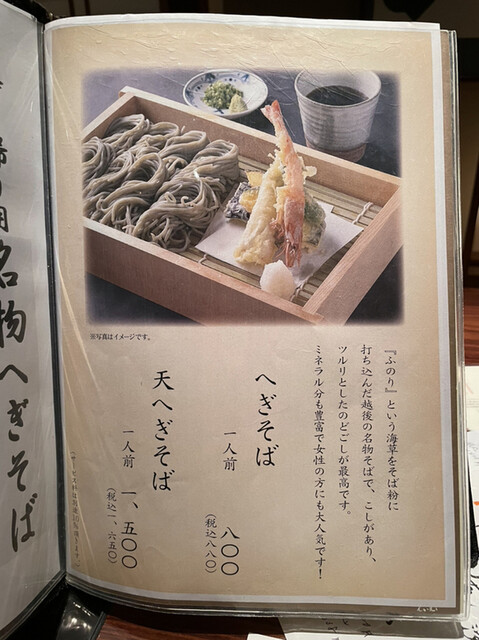 『ふのり』という海草をそば粉に
打ち込んだ越後の名物そばで、こしがあり、
ツルリとしたのどごしが最高です。
ミネラル分も豊富で女性の方にも大人気です!
へぎそば
一人前 八〇〇
(税込八八〇)
天へぎそば
一人前 一、五〇〇
(税込一、六五〇)
※写真はイメージです。
名物へぎそば